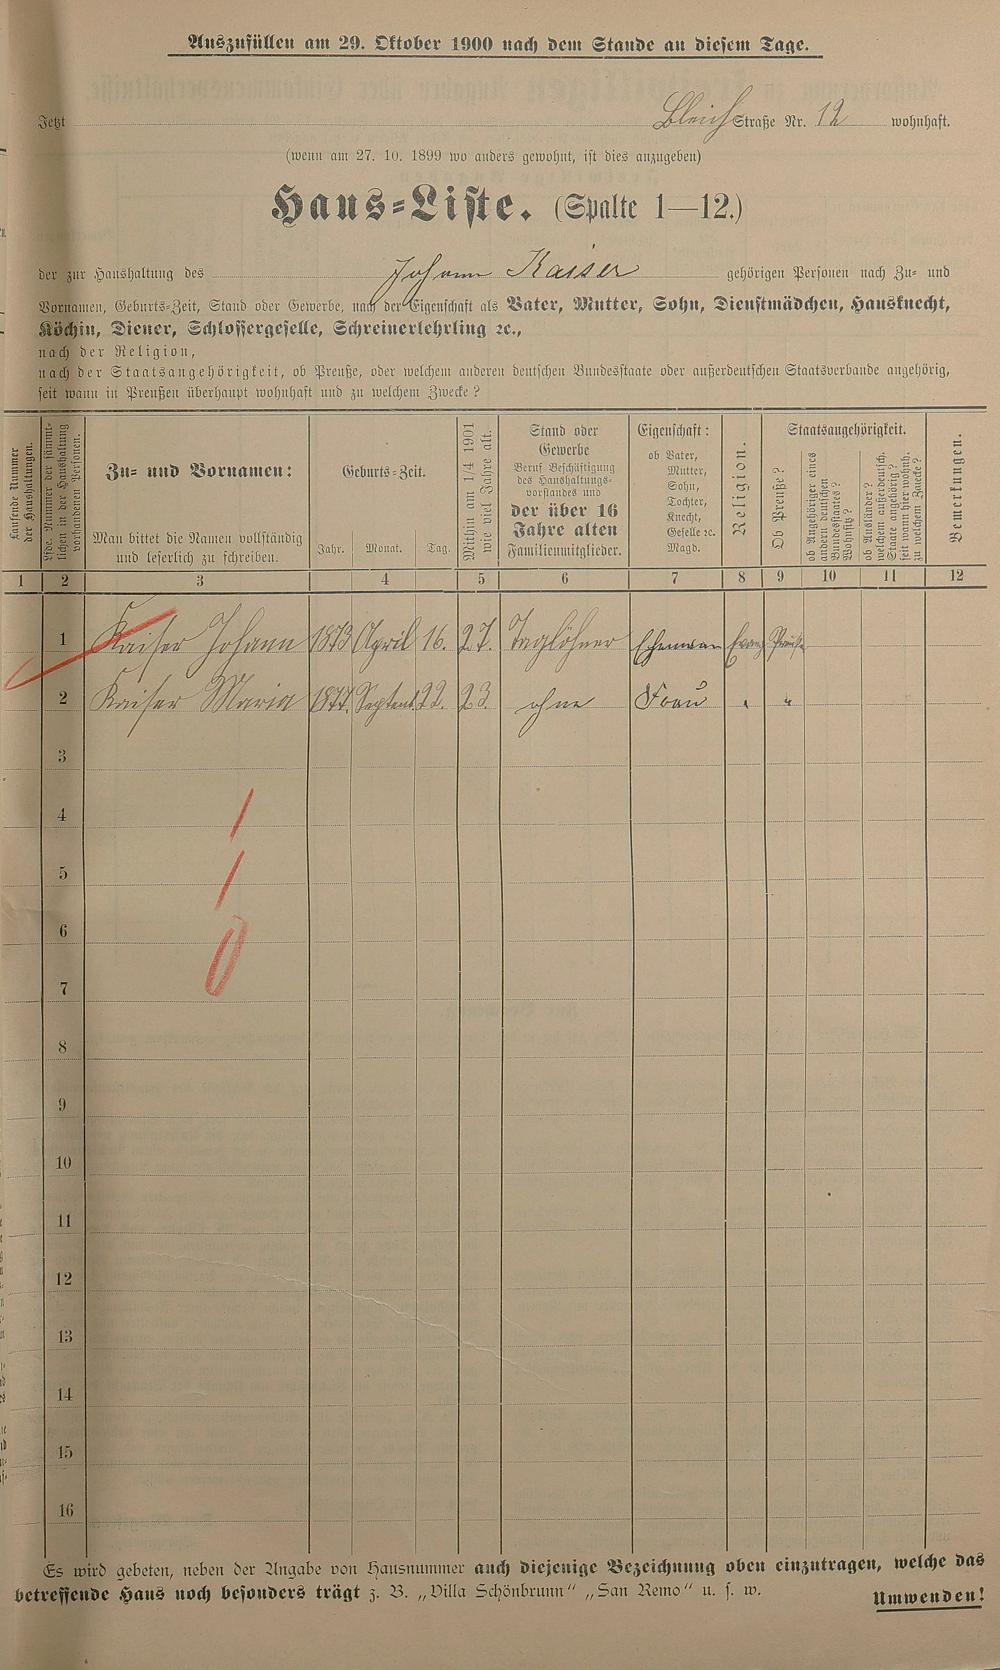 Auszufüllen am 29. Oktober 1900 nach dem Stande an diesem Tage.
Jetzt Bleich Straße Nr. 12 wohnhaft.
(wenn am 27. 10. 1899 wo anders gewohnt, ist dies anzugeben)
Haus-Liste. (Spalte 1—12.)
der zur Haushaltung des Johann Kaiser gehörigen Personen nach Zu- und
Vornamen, Geburts-Zeit, Stand oder Gewerbe, nach der Eigenschaft als Vater, Mutter, Sohn, Dienstmädchen, Hausknecht,
Köchin, Diener, Schlossergeselle, Schreinerlehrling ꝛc.,
nach der Religion,
nach der Staatsangehörigkeit, ob Preuße, oder welchem anderen deutschen Bundesstaate oder außerdeutschen Staatsverbande angehörig,
seit wann in Preußen überhaupt wohnhaft und zu welchem Zwecke?
Laufende Nummer
der Haushaltungen.
Lfde. Nummer der sämmt-
lichen in der Haushaltung
vorhandenen Personen.
Zu- und Vornamen:
Man bittet die Namen vollständig
und leserlich zu schreiben.
Geburts-Zeit.
Jahr. Monat. Tag.
Mithin am 1/4 1901
wie viel Jahre alt.
Stand oder
Gewerbe
Beruf Beschäftigung
des Haushaltungs-
vorstandes und
der über 16
Jahre alten
Familienmitglieder.
Eigenschaft:
ob Vater,
Mutter,
Sohn,
Tochter,
Knecht,
Geselle ꝛc.
Magd.
Religion.
Staatsangehörigkeit.
Ob Preuße?
ob Angehöriger eines
andern deutschen
Bundesstaates?
Wohnsitz?
ob Ausländer?
welchem außerdeutsch.
Staate angehörig?
seit wann hier wohnh.
zu welchem Zwecke?
Bemerkungen.
1 2 3 4 5 6 7 8 9 10 11 12
1 Kaiser Johann 1873 April 16. 27. Taglöhner Ehemann Evang. Preuße
2 Kaiser Maria 1877. Septemb. 22. 23. ohne Frau " "
3
4
5
6
7
8
9
10
11
12
13
14
15
16
Es wird gebeten, neben der Angabe von Hausnummer auch diejenige Bezeichnung oben einzutragen, welche das
betreffende Haus noch besonders trägt z. B. „Villa Schönbrunn" „San Remo" u. s. w.
Umwenden!